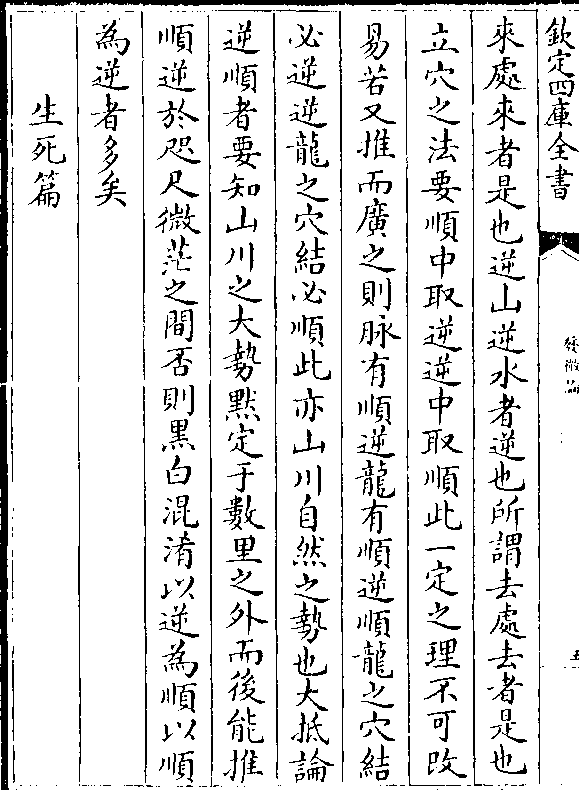 欽定四庫全書
發微論
五
來處來者是也逆山逆水者逆也所謂去處去者是也
立穴之法要順中取逆逆中取順此一定之理不可改
易若又推而廣之則脉有順逆龍有順逆順龍之穴結
必逆逆龍之穴結必順此亦山川自然之勢也大抵論
逆順者要知山川之大勢黙定于數里之外而後能推
順逆於咫尺微茫之間否則黒白混淆以逆為順以順
為逆者多矣
生死篇